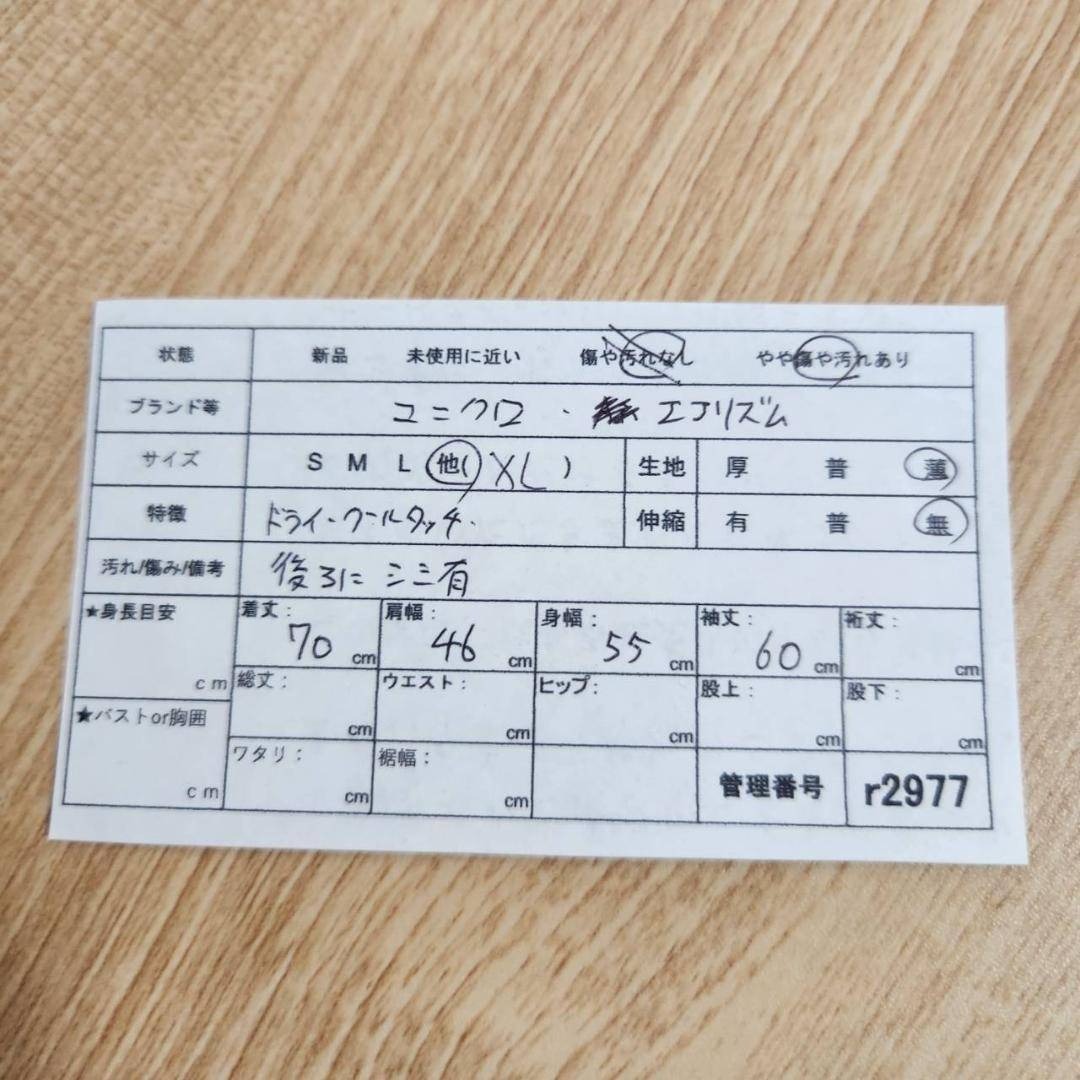 状態 新品 未使用に近い 傷や汚れなし やや傷や汚れあり
ブランド等 ユニクロ・ エコリズム
サイズ S M L 他( XL ) 生地 厚 普 薄
特徴 ドライ・クールタッチ. 伸縮 有 普 無
汚れ/傷み/備考 後ろに シミ有
★身長目安 cm 着丈: 70 cm 肩幅: 46 cm 身幅: 55 cm 袖丈: 60 cm 裄丈: cm
総丈: cm ウエスト: cm ヒップ: cm 股上: cm 股下: cm
★バストor胸囲 cm ワタリ: cm 裾幅: cm 管理番号 r2977